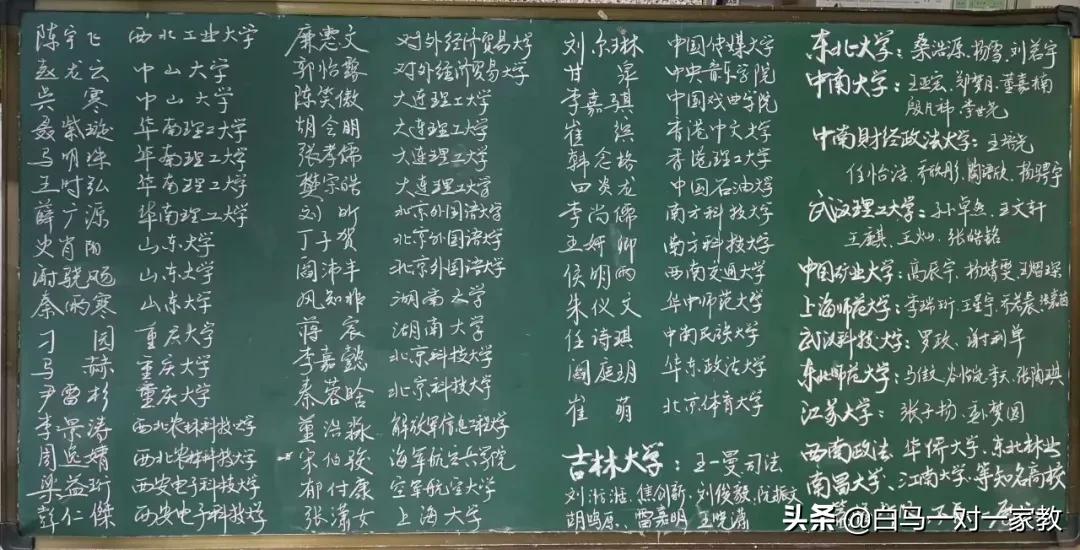 陈宇飞 西北工业大学
赵龙云 中山大学
吴寒 中山大学
聂紫璇 华南理工大学
马明琛 华南理工大学
王时弘 华南理工大学
薛广源 华南理工大学
史肖阳 山东大学
谢骁飏 山东大学
秦雨寒 山东大学
刁园 重庆大学
马赫 重庆大学
尹雷杉 重庆大学
李景涛 西北农林科技大学
周逸婧 西北农林科技大学
梁益珩 西安电子科技大学
彭仁傑 西安电子科技大学
廉惠文 对外经济贸易大学
郭怡露 对外经济贸易大学
陈笑傲 大连理工大学
胡令明 大连理工大学
张孝儒 大连理工大学
樊宗皓 大连理工大学
刘昕 北京外国语大学
丁子贺 北京外国语大学
阎沛丰 北京外国语大学
风知非 湖南大学
蒋宸 湖南大学
李嘉懿 北京科技大学
秦蓉晗 北京科技大学
董浩淼 解放军信息工程大学
宋伯骏 海军航空兵学院
郁付康 空军航空大学
张潇女 上海大学
刘尔琳 中国传媒大学
甘霂 中央音乐学院
李嘉骐 中国戏曲学院
崔缤 香港中文大学
韩念格 香港理工大学
四炎龙 中国石油大学
李尚儒 南方科技大学
王妍卿 南方科技大学
侯明雨 西南交通大学
朱仪文 华中师范大学
任诗琪 中南民族大学
阎庭玥 华东政法大学
崔萌 北京体育大学
吉林大学：王一曼 司法
焦创新、刘俊毅、阮振文
胡鸣原、雷嘉明、王晓潇
东北大学：桑浩源、杨雪、刘若宇
中南大学：王亚宏、郑梦月、董嘉楠
殷凡祎、李世光
中南财经政法大学：王培光
任怡洁、陶语欣、杨骋宇
武汉理工大学：孙卓然、王文轩
王庭祺、王灿、张皓铭
中国矿业大学：高辰宇、杨婧雯、王熠琛
上海师范大学：李瑞珩、王星宇、齐若晨、张嘉茵
武汉科技大学：罗政、谢利单
东北师范大学：马傲、张陶琪
江苏大学：张子扬、孟梦圆
西南政法、华侨大学、东北林业
南昌大学、江南大学、等知名高校
头条 @白马一对一家教